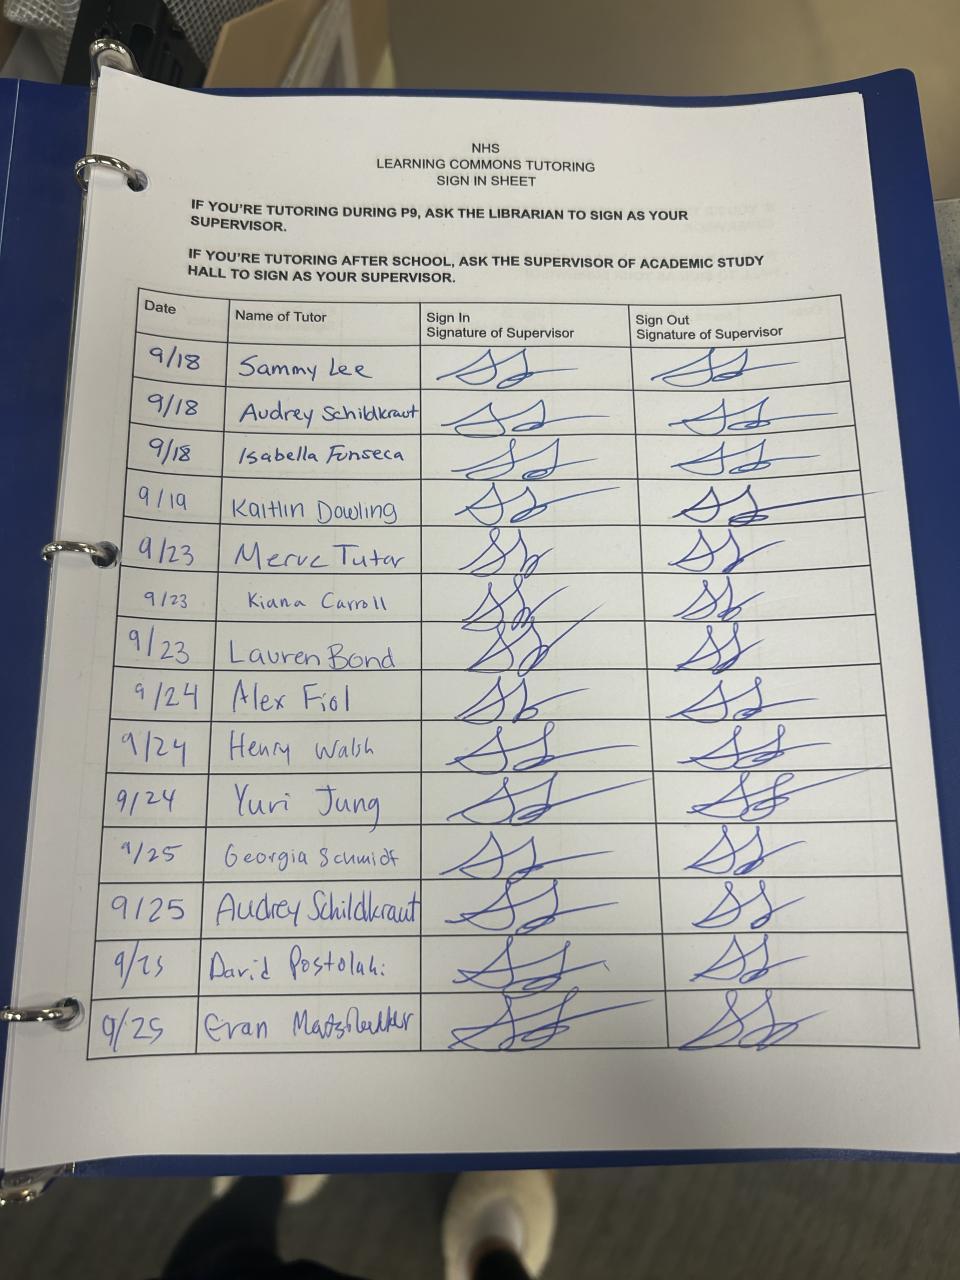 NHS
LEARNING COMMONS TUTORING
SIGN IN SHEET
IF YOU'RE TUTORING DURING P9, ASK THE LIBRARIAN TO SIGN AS YOUR
SUPERVISOR.
IF YOU'RE TUTORING AFTER SCHOOL, ASK THE SUPERVISOR OF ACADEMIC STUDY
HALL TO SIGN AS YOUR SUPERVISOR.
Date Name of Tutor Sign In Sign Out
Signature of Supervisor Signature of Supervisor
9/18 Sammy Lee
9/18 Audrey Schildkraut
9/18 Isabella Fonseca
9/19 Kaitlin Dowling
9/23 Merve Tutar
9/23 Kiana Carroll
9/23 Lauren Bond
9/24 Alex Fiol
9/24 Henry Walsh
9/24 Yuri Jung
9/25 Georgia Schmidt
9/25 Audrey Schildkraut
9/25 David Postolaki
9/25 Evan